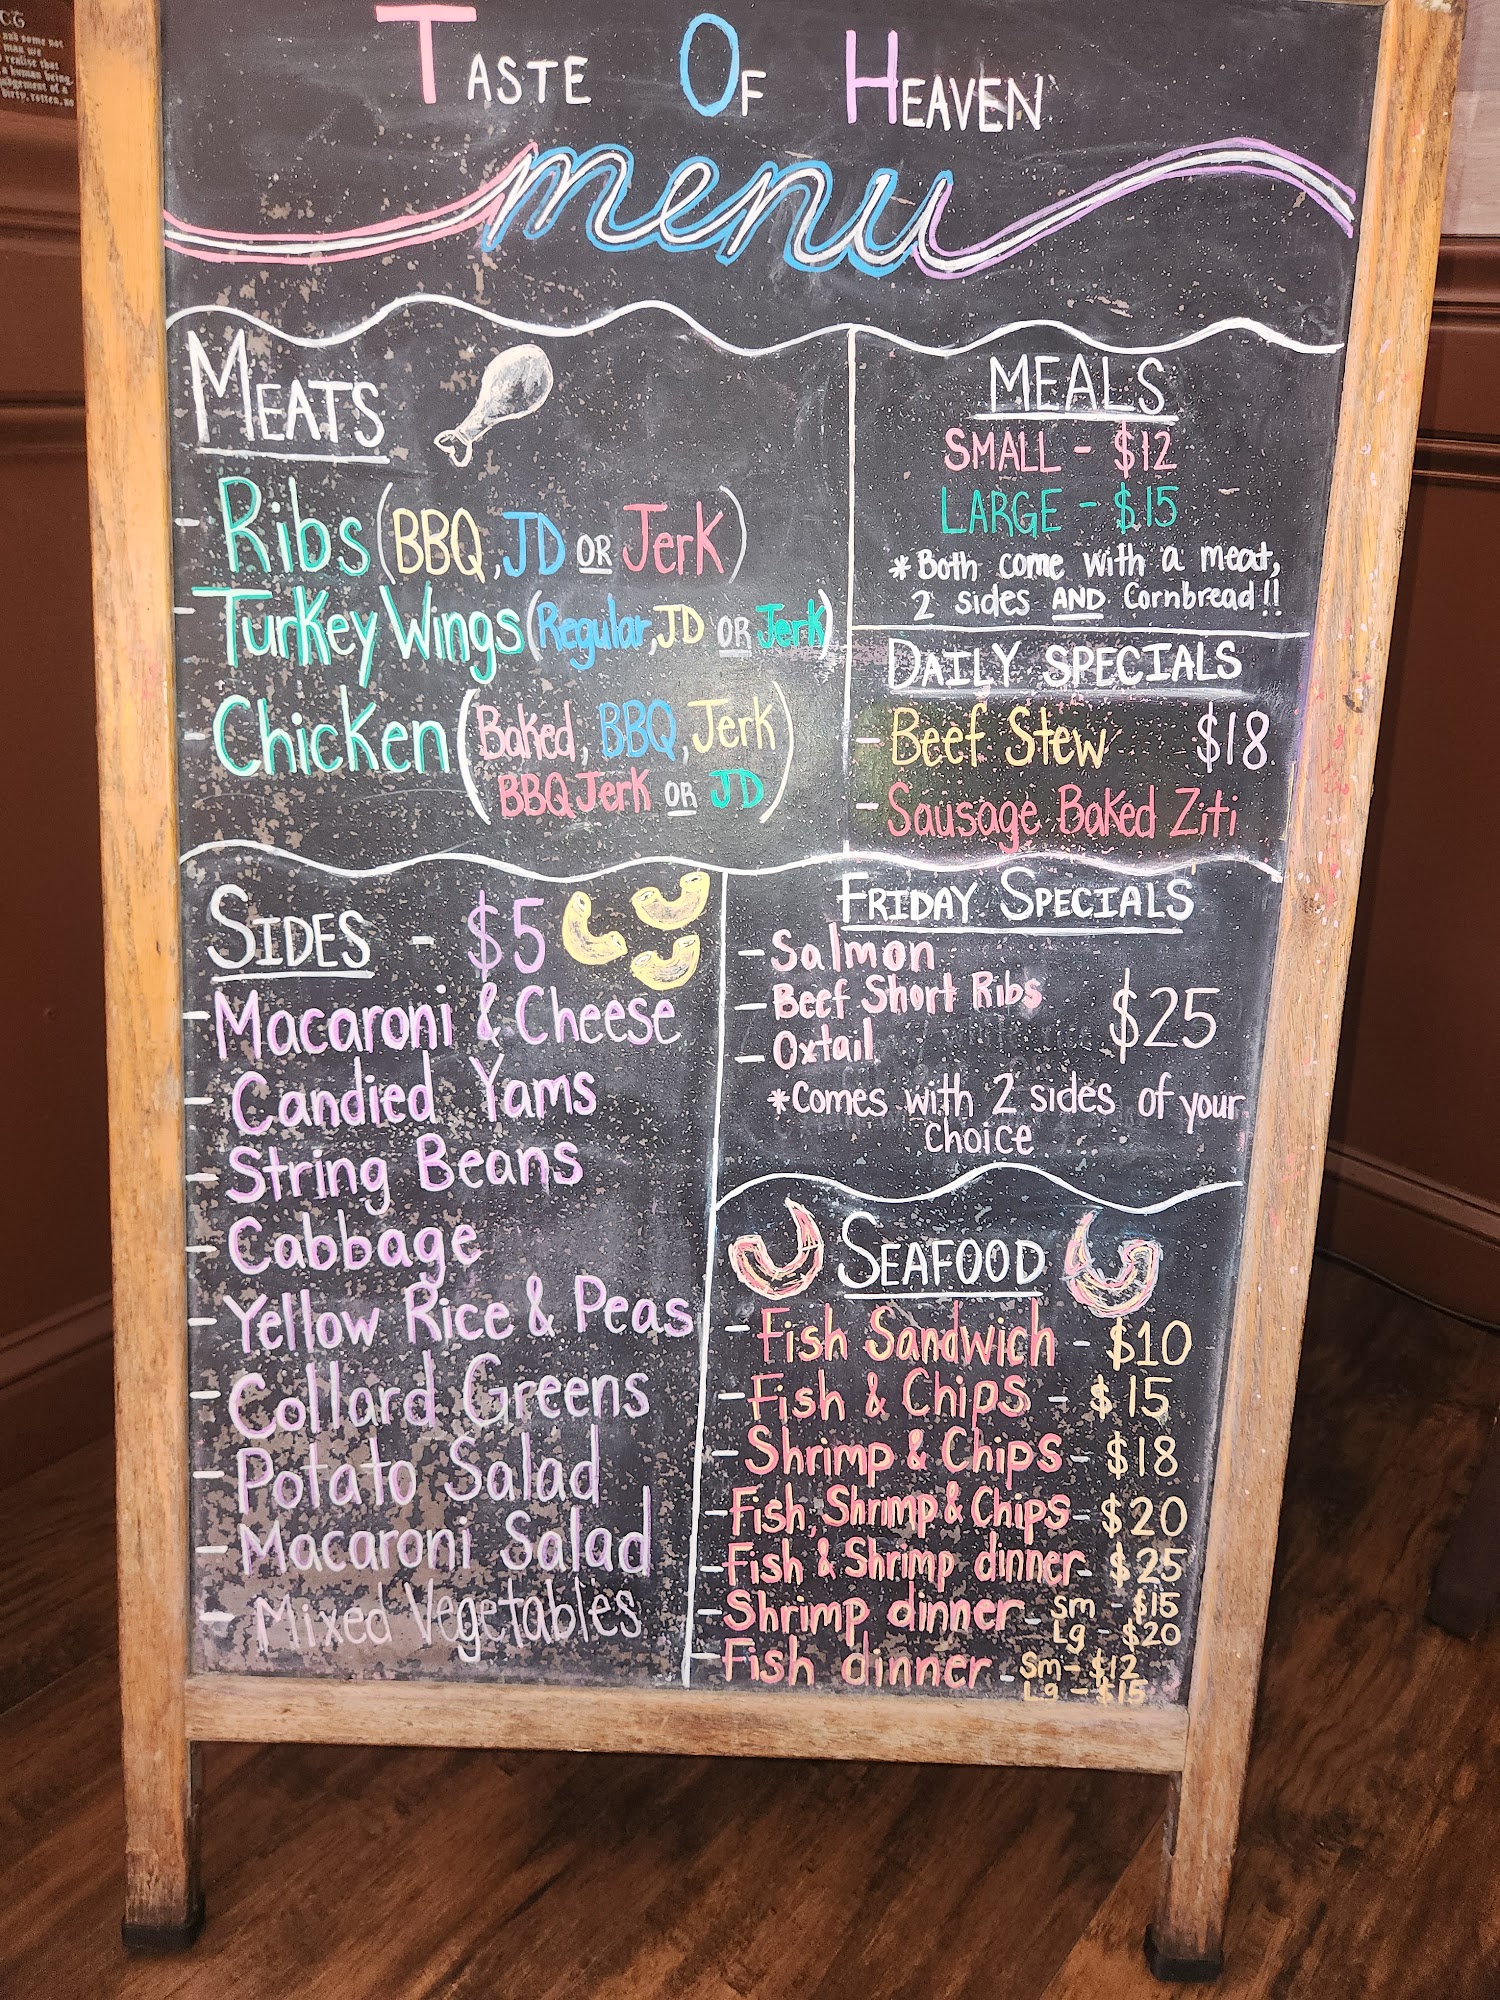 CG
and some not
man we
realise that
a human being
TASTE OF HEAVEN
menu
MEATS
- Ribs (BBQ, JD OR Jerk)
- Turkey Wings (Regular, JD OR Jerk)
- Chicken (Baked, BBQ, Jerk
BBQ Jerk OR JD)
MEALS
SMALL - $12
LARGE - $15
*Both come with a meat,
2 sides AND Cornbread!!
DAILY SPECIALS
- Beef Stew $18
- Sausage Baked Ziti
SIDES - $5
- Macaroni & Cheese
- Candied Yams
- String Beans
- Cabbage
- Yellow Rice & Peas
- Collard Greens
- Potato Salad
- Macaroni Salad
- Mixed Vegetables
FRIDAY SPECIALS
- Salmon
- Beef Short Ribs $25
- Oxtail
*Comes with 2 sides of your
choice
SEAFOOD
- Fish Sandwich - $10
- Fish & Chips - $15
- Shrimp & Chips - $18
- Fish, Shrimp & Chips - $20
- Fish & Shrimp dinner - $25
- Shrimp dinner - Sm - $15
Lg - $20
- Fish dinner - Sm - $12
Lg - $15